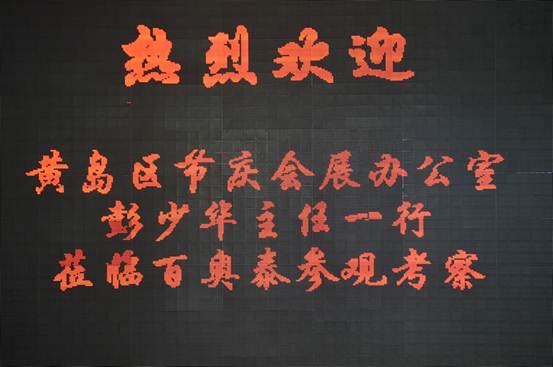 热烈欢迎
黄岛区节庆会展办公室
彭少华主任一行
莅临百奥泰参观考察